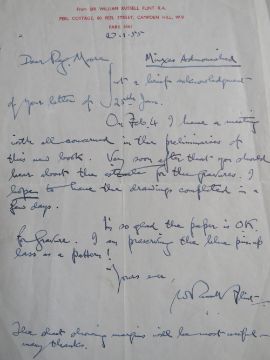 From SIR WILLIAM RUSSELL FLINT R.A.
PEEL COTTAGE, 80 PEEL STREET, CAMPDEN HILL, W.8
PARK
27-1-55
Dear Mr. Moore
Just a brief acknowledgment
of your letter of 25th Jan.
On Feb. 4 I have a meeting
with all concerned in the preliminaries of
this new book. Very soon after that you should
hear about the estimate for the gravures. I
hope to have the drawings completed in a
few days.
I'm so glad the paper is OK
for gravure. I am preserving the blue pin-up
lass as a pattern!
Yours ever
W Russell Flint
The sheet showing margins will be most useful –
many thanks.